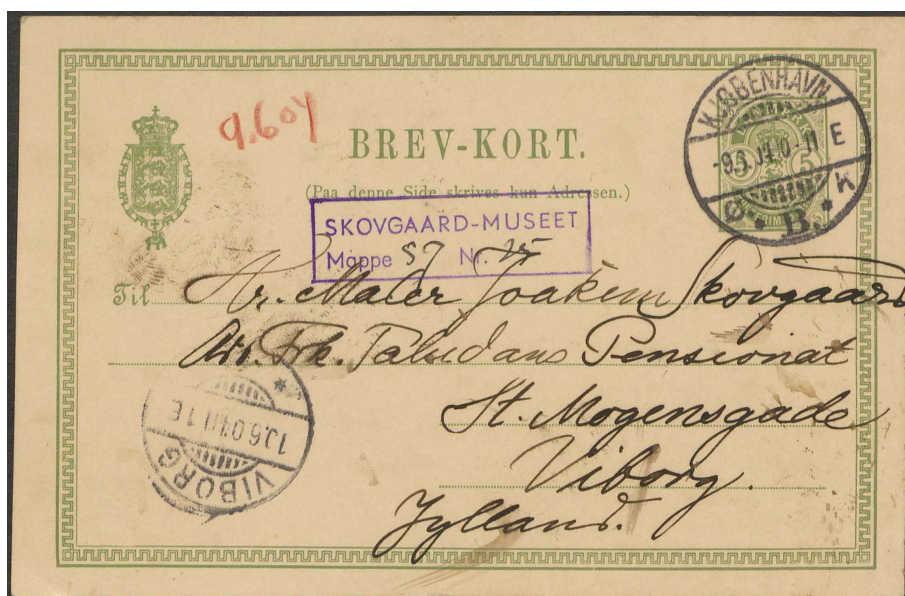 9.6 04
BREV-KORT.
(Paa denne Side skrives kun Adressen.)
KJØBENHAVN
-9.6. 04. 10-11 E
K
Ø. * B. *
5
SKOVGAARD-MUSEET
Mappe 57 Nr. 25
Til Hr. Maler Joakim Skovgaard
Adr. Frk. Pensionat
St. Mogensgade
Viborg.
Jylland.
VIBORG
10.6.04 11 1 E